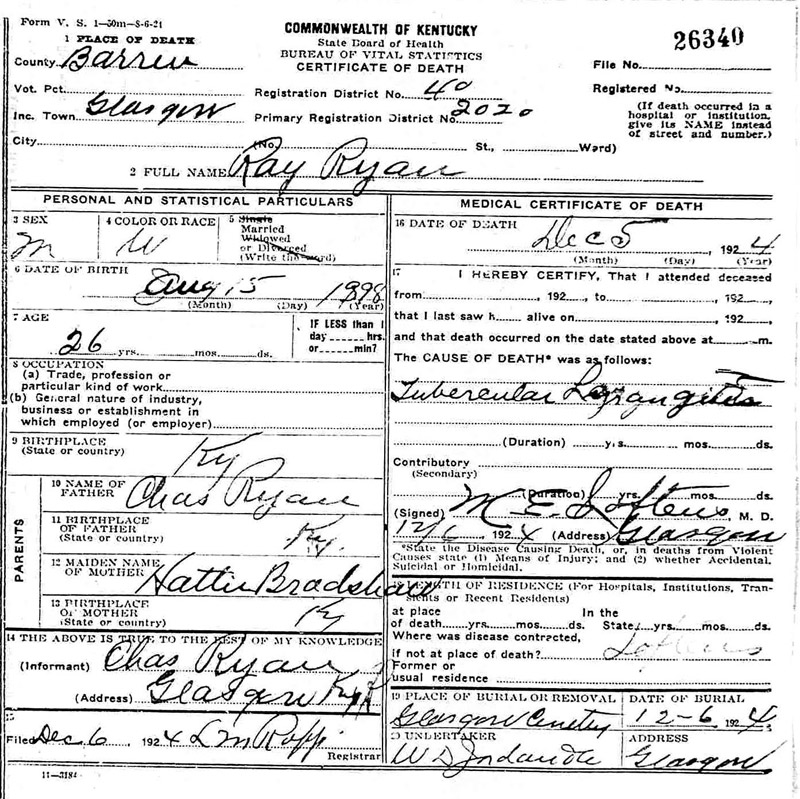 Form V. S. 1—50m—8-6-21
COMMONWEALTH OF KENTUCKY
State Board of Health
BUREAU OF VITAL STATISTICS
CERTIFICATE OF DEATH
26340
1 PLACE OF DEATH
County Barren
File No.
Vot. Pct.
Registration District No. 40
Registered No.
Inc. Town Glasgow
Primary Registration District No. 2020
(If death occurred in a hospital or institution, give its NAME instead of street and number.)
City (No. St., Ward)
2 FULL NAME Ray Ryan
PERSONAL AND STATISTICAL PARTICULARS
3 SEX
M
4 COLOR OR RACE
W
5 Single
Married
Widowed
or Divorced
(Write the word)
6 DATE OF BIRTH
Aug 15 1898
(Month) (Day) (Year)
7 AGE
26 yrs. mos. ds.
IF LESS than 1
day hrs.
or min?
8 OCCUPATION
(a) Trade, profession or
particular kind of work
(b) General nature of industry,
business or establishment in
which employed (or employer)
9 BIRTHPLACE
(State or country)
Ky
PARENTS
10 NAME OF
FATHER
Chas Ryan
11 BIRTHPLACE
OF FATHER
(State or country)
Ky.
12 MAIDEN NAME
OF MOTHER
Hattie Bradshaw
13 BIRTHPLACE
OF MOTHER
(State or country)
Ky
14 THE ABOVE IS TRUE TO THE BEST OF MY KNOWLEDGE
(Informant) Chas Ryan
(Address) Glasgow Ky
15
Filed Dec 6 1924
Registrar
11-3184
MEDICAL CERTIFICATE OF DEATH
16 DATE OF DEATH
Dec 5 1924
(Month) (Day) (Year)
17 I HEREBY CERTIFY, That I attended deceased
from , 192 , to , 192 ,
that I last saw h alive on , 192 ,
and that death occurred on the date stated above at m.
The CAUSE OF DEATH* was as follows:
Tubercular Laryngitis
(Duration) yrs. mos. ds.
Contributory
(Secondary)
(Duration) yrs. mos. ds.
(Signed) M. E. Loftens M. D.
12/6, 1924 (Address) Glasgow
*State the Disease Causing Death, or, in deaths from Violent
Causes state (1) Means of Injury; and (2) whether Accidental,
Suicidal or Homicidal.
18 LENGTH OF RESIDENCE (For Hospitals, Institutions, Transients or Recent Residents)
at place In the
of death yrs. mos. ds. State yrs. mos. ds.
Where was disease contracted,
if not at place of death?
Former or
usual residence
19 PLACE OF BURIAL OR REMOVAL
Glasgow Cemetery
DATE OF BURIAL
12-6 1924
20 UNDERTAKER
ADDRESS
Glasgow